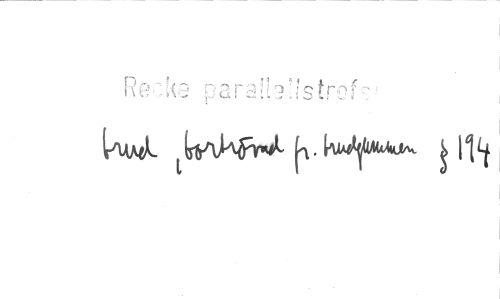 Recke parallellstrofer
brud, bortrövad fr. brudgummen § 194